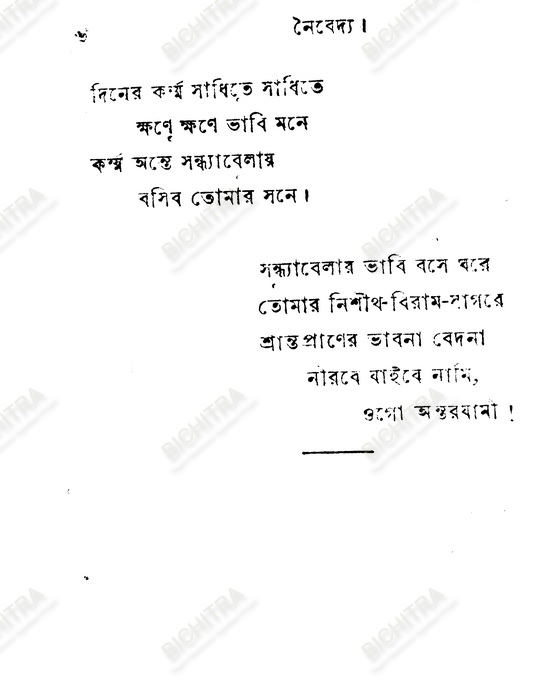 ৬
নৈবেদ্য।
দিনের কর্ম্ম সাধিতে সাধিতে
ক্ষণে ক্ষণে ভাবি মনে
কর্ম্ম অন্তে সন্ধ্যাবেলায়
বসিব তোমার সনে।
সন্ধ্যাবেলায় ভাবি বসে ঘরে
তোমার নিশীথ-বিরাম-সাগরে
শ্রান্তপ্রাণের ভাবনা বেদনা
নীরবে যাইবে নামি,
ওগো অন্তরযামী!
BICHITRA